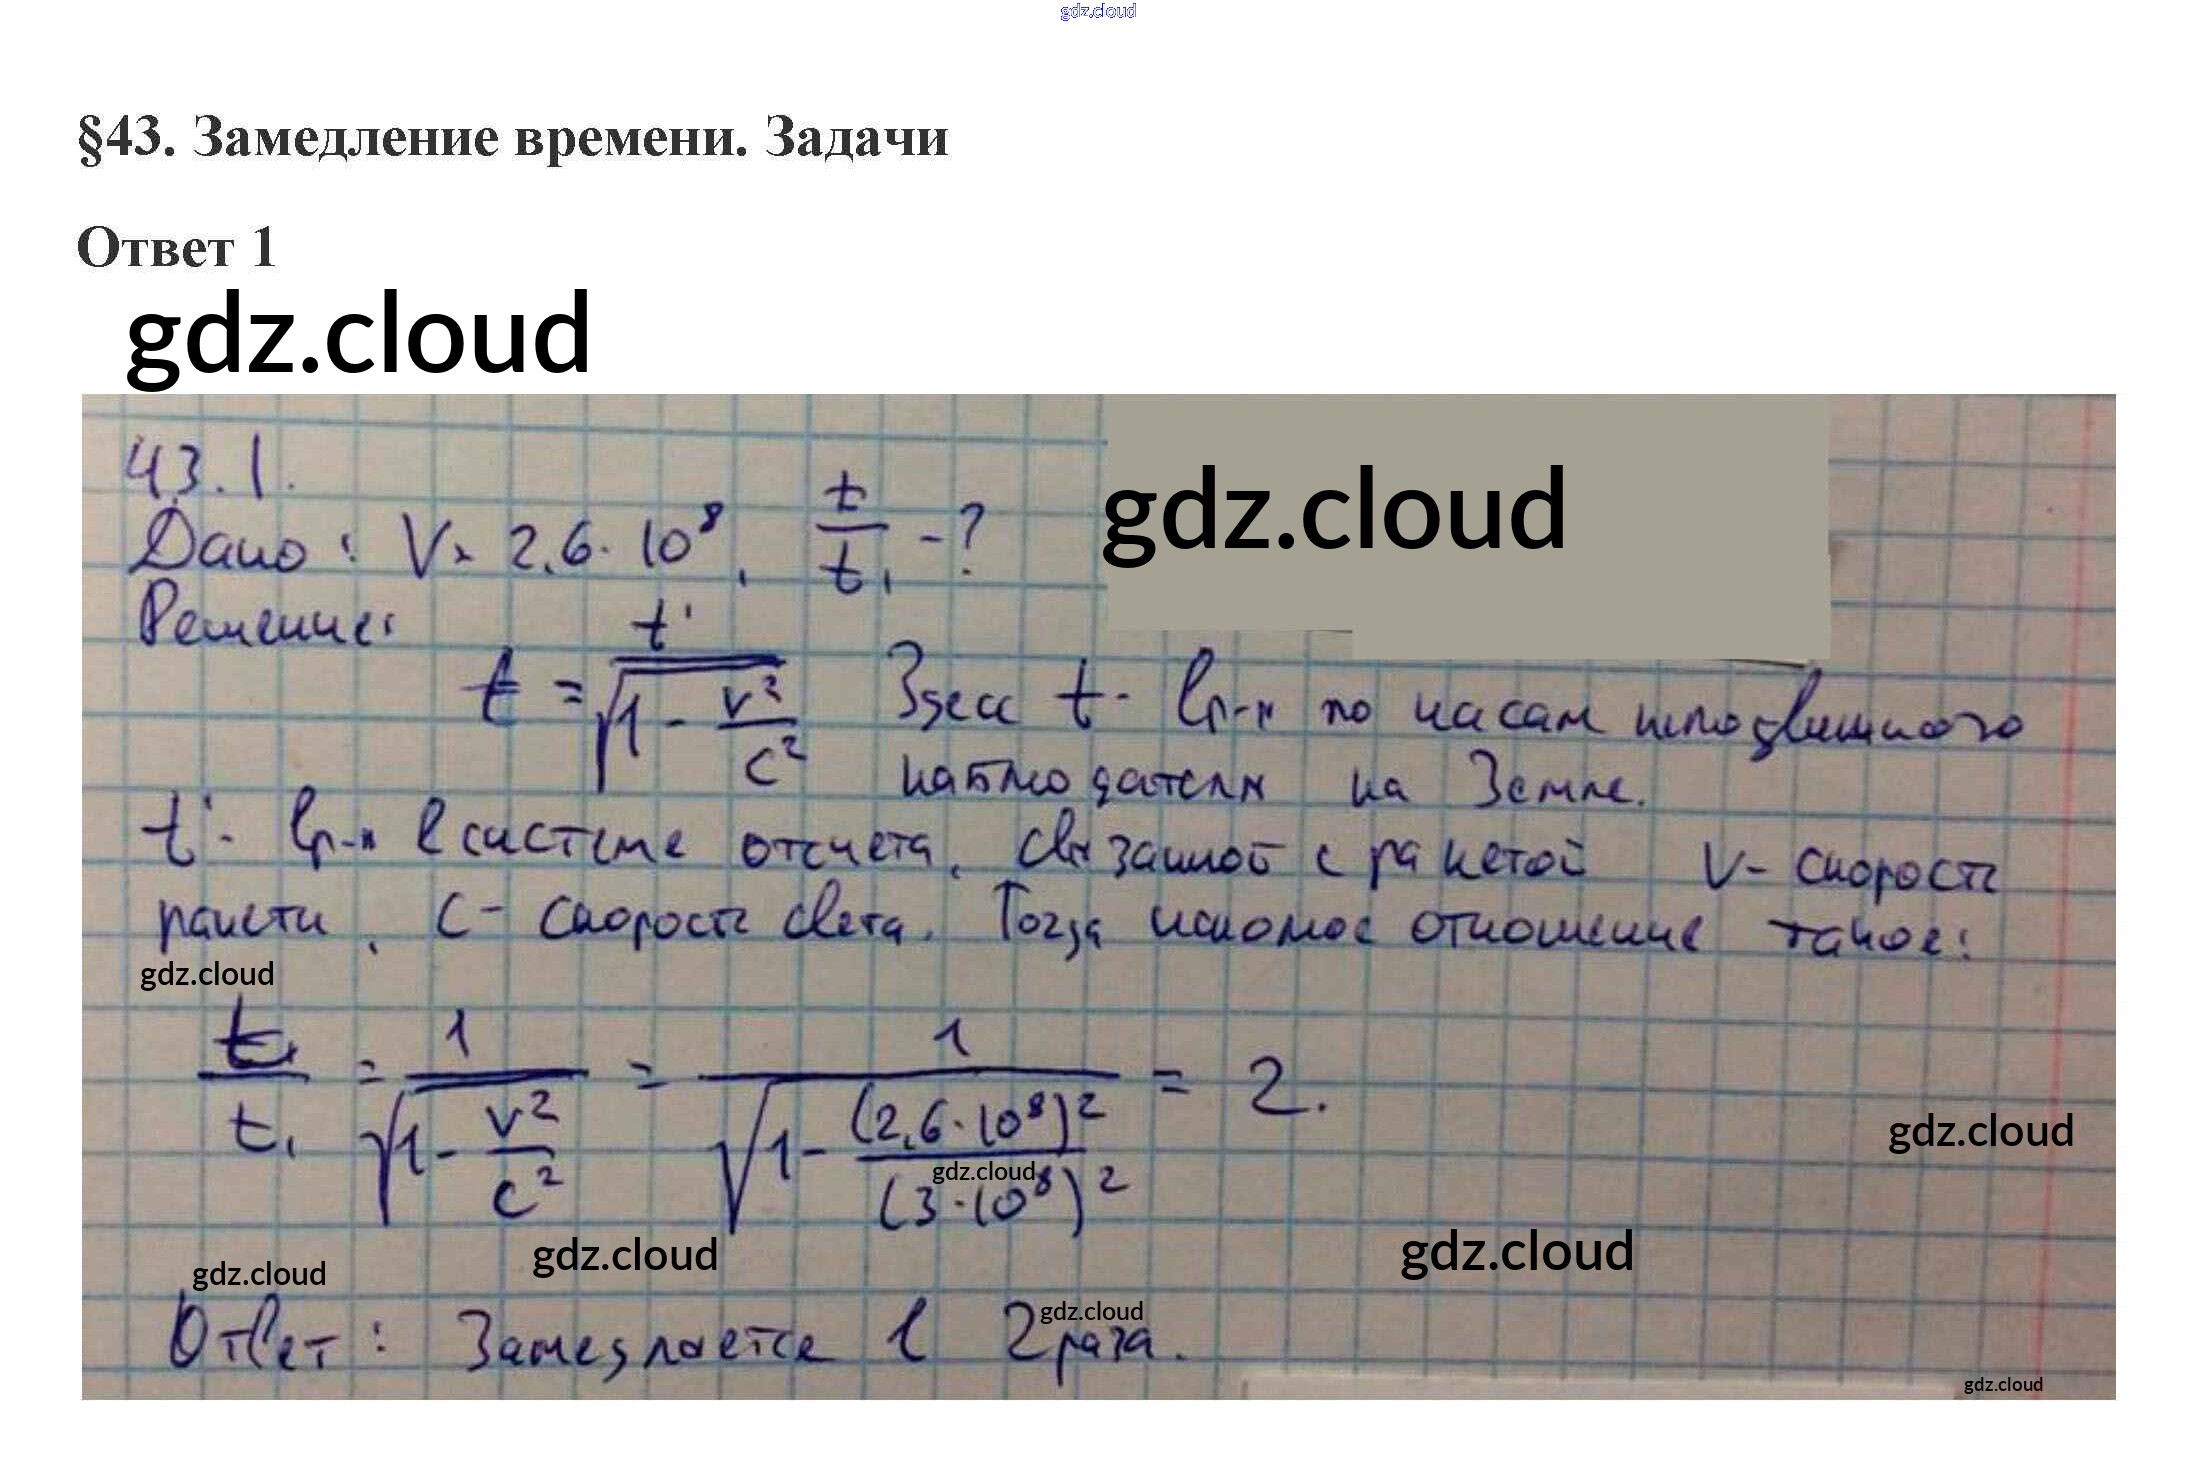 gdz.cloud
§43. Замедление времени. Задачи
Ответ 1
gdz.cloud
43.1.
Дано: V = 2,6 · 10⁸, t/t₁ - ?
gdz.cloud
Решение:
t = t'/√(1 - v²/c²) Здесь t - вр-я по часам неподвижного
наблюдателя на Земле.
t' - вр-я в системе отсчета, связанной с ракетой V - скорость
ракеты, C - скорость света. Тогда искомое отношение такое:
gdz.cloud
t/t₁ = 1/√(1 - v²/c²) = 1/√(1 - (2,6·10⁸)²/(3·10⁸)²) = 2.
gdz.cloud
gdz.cloud
gdz.cloud
gdz.cloud
gdz.cloud
gdz.cloud
Ответ: Замедляется в 2 раза.
gdz.cloud